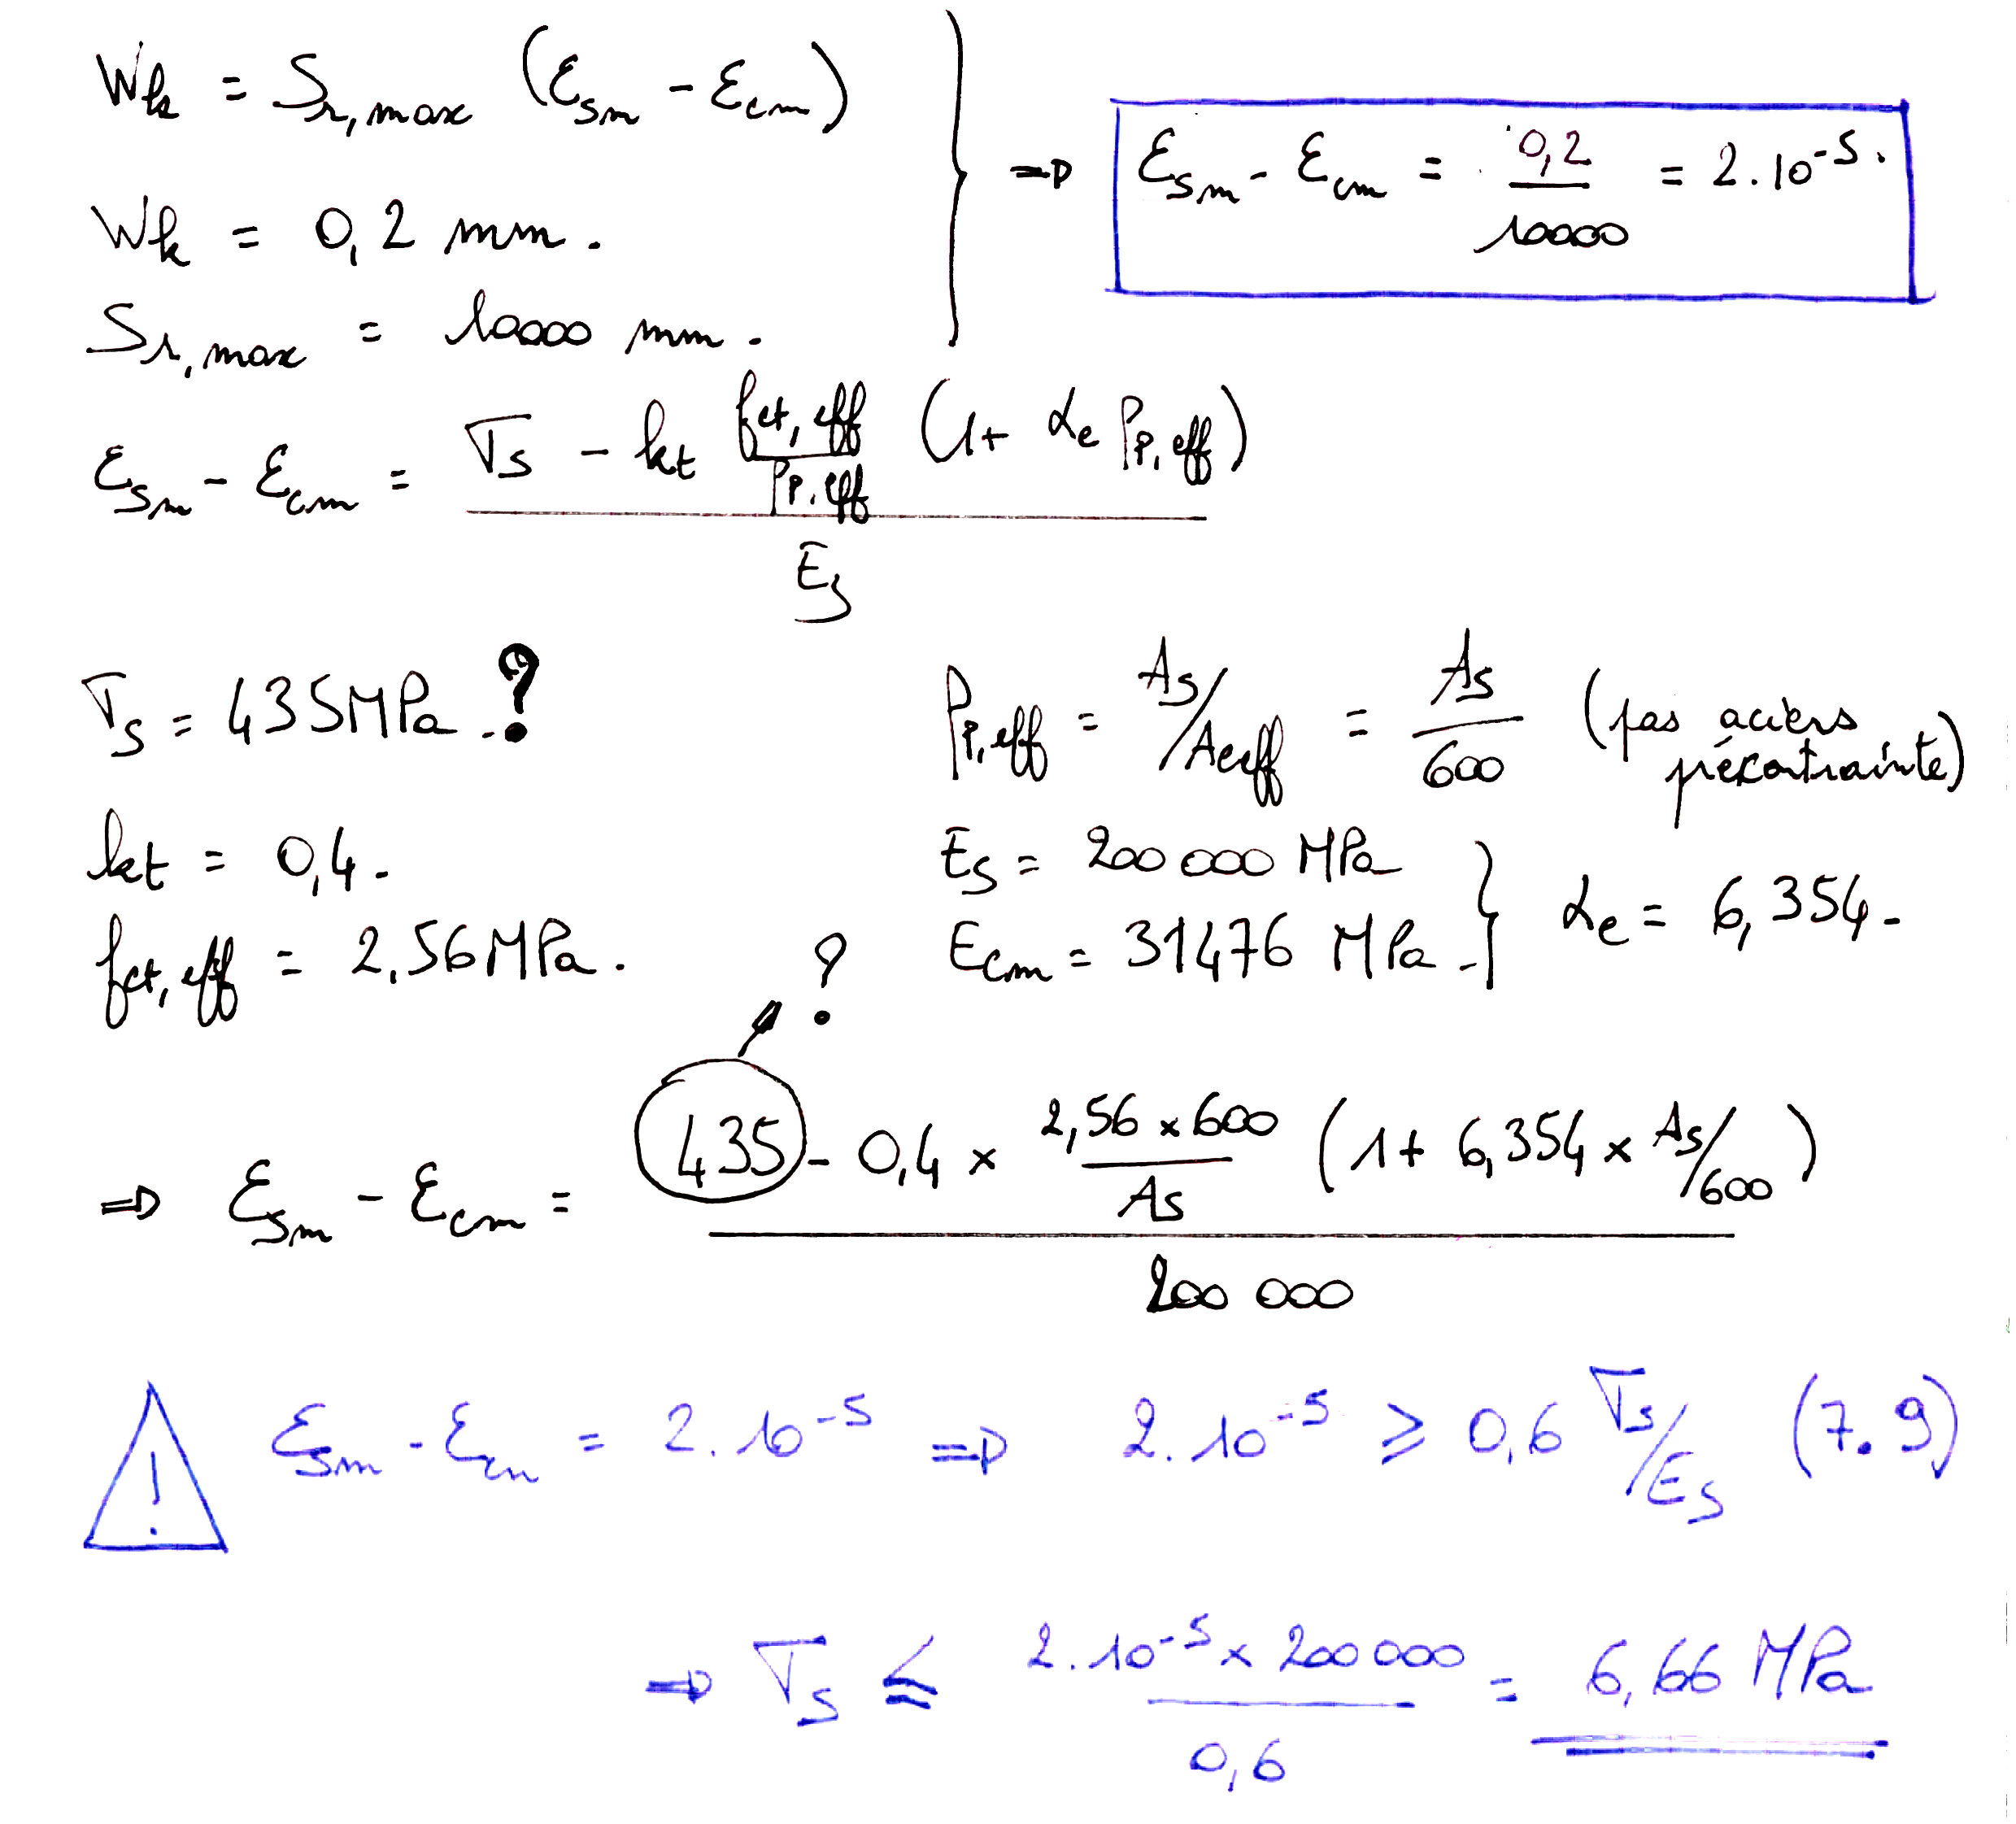 Wk = Sr,max (εsm - εcm)
Wk = 0,2 mm.
Sr,max = 10000 mm.
⇒ εsm - εcm = 0,2 / 10000 = 2.10⁻⁵.
εsm - εcm = (σs - kt fct,eff / ρp,eff (1 + αe ρp,eff)) / Es
σs = 435 MPa. ?
ρp,eff = As/Aceff = As / 600 (pas aciers précontrainte)
kt = 0,4.
Es = 200 000 MPa
fct,eff = 2,56 MPa.
Ecm = 31476 MPa. } αe = 6,354.
?
⇒ εsm - εcm = (435 - 0,4 × 2,56 × 600 / As (1 + 6,354 × As/600)) / 200 000
! εsm - εcm = 2.10⁻⁵ ⇒ 2.10⁻⁵ ⩾ 0,6 σs/Es (7.9)
⇒ σs ≤ 2.10⁻⁵ × 200 000 / 0,6 = 6,66 MPa